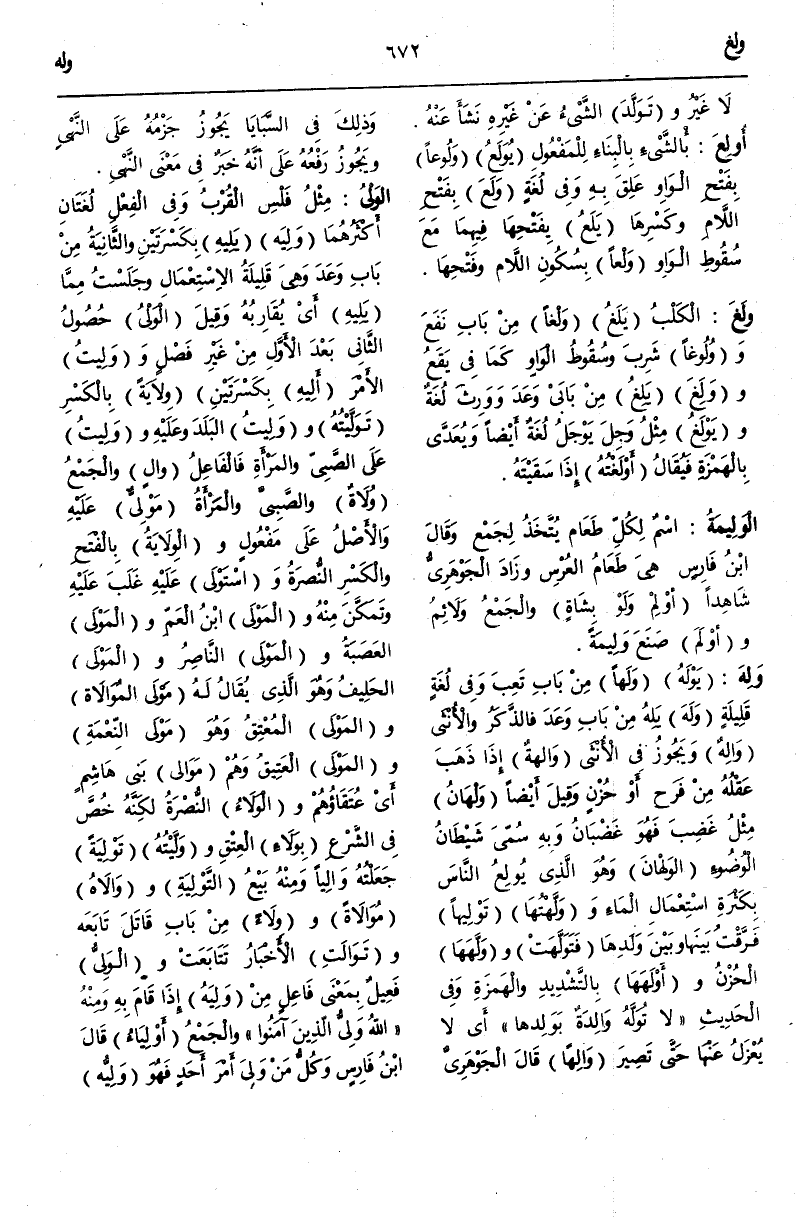 ولغ
٦٧٢
وله
لَا غَيْرُ و (تَوَلَّدَ) الشَّىْءُ عَنْ غَيْرِهِ نَشَأَ عَنْهُ .
أُولِعَ : بِالشَّىْءِ بِالْبِنَاءِ لِلْمَفْعُولِ (يُولَعُ) (وَلُوعاً)
بِفَتْحِ الْوَاوِ عَلِقَ بِهِ وَفِى لُغَةٍ (وَلَعَ) بِفَتْحِ
اللَّامِ وكَسْرِهَا (يَلَعُ) بِفَتْحِهَا فِيهِمَا مَعَ
سُقُوطِ الْوَاوِ (وَلْعاً) بِسُكُونِ اللَّامِ وفَتْحِهَا .
وَلَغَ : الْكَلْبُ (يَلَغُ) (وَلْغاً) مِنْ بَابِ نَفَعَ
وَ (وُلُوغاً) شَرِبَ وسُقُوطُ الْوَاوِ كَمَا فِى يَقَعُ
و (وَلَغَ) (يَلِغُ) مِنْ بَابَىْ وَعَدَ وَوَرِثَ لُغَةٌ
و (يَوْلَغُ) مِثْلُ وَجِلَ يَوْجَلُ لُغَةٌ أَيْضاً وَيُعَدَّى
بِالْهَمْزَةِ فَيُقَالُ (أَوْلَغْتُهُ) إِذَا سَقَيْتَهُ .
الْوَلِيمَةُ : اسْمٌ لِكُلِّ طَعَامٍ يُتَّخَذُ لِجَمْعٍ وَقَالَ
ابْنُ فَارِسٍ هِىَ طَعَامُ الْعُرْسِ وزَادَ الْجَوْهَرِىُّ
شَاهِداً (أَوْلِمْ وَلَوْ بِشَاةٍ) والْجَمْعُ وَلَائِمُ
و (أَوْلَمَ) صَنَعَ وَلِيمَةً .
وَلِهَ : (يَوْلَهُ) (وَلَهاً) مِنْ بَابِ تَعِبَ وَفِى لُغَةٍ
قَلِيلَةٍ (وَلَهَ) يَلِهُ مِنْ بَابِ وَعَدَ فالذَّكَرُ والْأُنْثَى
(وَالِهٌ) وَيَجُوزُ فِى الْأُنْثَى (وَالهةٌ) إِذَا ذَهَبَ
عَقْلُهُ مِنْ فَرَحٍ أَوْ حُزْنٍ وَقِيلَ أَيْضاً (وَلْهَانُ)
مِثْلُ غَضِبَ فَهُوَ غَضْبَانُ وَبِهِ سُمِّىَ شَيْطَانُ
الْوُضُوءِ (الوَلْهَانَ) وَهُوَ الَّذِى يُولِعُ النَّاسَ
بِكَثْرَةِ اسْتِعْمَالِ الْمَاءِ وَ (وَلَّهْتُهَا) (تَوْلِيهاً)
فَرَّقْتُ بَيْنَهاوبَيْنَ وَلَدِهَا (فَتَوَلَّهَتْ) و (وَلَّهَهَا)
الْحُزْنُ و (أَوْلَهَهَا) بِالتَّشْدِيدِ والْهَمْزَةِ وَفِى
الْحَدِيثِ «لا تُوَلَّهُ وَالِدَةٌ بِوَلِدها» أَى لا
يُعْزَلُ عَنْهَا حَتَّى تَصِيرَ (وَالِهًا) قَالَ الْجَوْهَرِىُّ
وَذلِكَ فِى السَّبَايَا يَجُوزُ جَزْمُهُ عَلَى النَّهْىِ
ويَجُوزُ رَفْعُهُ عَلَى أَنَّهُ خَبَرٌ فِى مَعْنَى النَّهْىِ .
الْوَلْىُ : مِثْلُ فَلْسٍ الْقُرْبُ وَفِى الْفِعْلِ لُغَتَانِ
أَكْثَرُهُمَا (وَلِيَه) (يَلِيهِ) بِكَسْرَتَيْنِ والثَّانِيَةُ مِنْ
بَابِ وَعَدَ وَهِىَ قَلِيلَةُ الاِسْتِعْمَالِ وجَلَسْتُ مِمَّا
(يَلِيهِ) أَىْ يُقَارِبُهُ وَقِيلَ (الْوَلْىُ) حُصُولُ
الثَّانِى بَعْدَ الْأَوَّلِ مِنْ غَيْرِ فَصْلٍ وَ (وَلِيتُ)
الأَمْرَ (أَلِيهِ) بِكَسْرَتَيْنِ) (وِلَايَةً) بِالْكَسْرِ
(تَوَلَّيْتُهُ) و (وَلِيتُ) البَلَدَ وعَلَيْهِ و (وَلِيتُ)
عَلَى الصَّبِىِّ والمَرْأَةِ فَالْفَاعِلُ (وَالٍ) والْجَمْعُ
(وُلَاةٌ) والصَّبِىُّ والْمَرْأَةُ (مَوْلِىٌّ) عَلَيْهِ
وَالْأَصْلُ عَلَى مَفْعُولٍ و (الْوَلَايَةُ) بِالْفَتْحِ
والْكَسْرِ النُّصرَةُ وَ (اسْتَوْلَى) عَلَيْهِ غَلَبَ عَلَيْهِ
وتَمَكَّنَ مِنْهُ و (الْمَوْلَى) ابْنُ الْعَمِّ و (الْمَوْلَى)
العَصَبَةُ و (الْمَوْلَى) النَّاصِرُ و (الْمَوْلَى)
الحَلِيفُ وَهُوَ الَّذِى يُقَالُ لَهُ (مَوْلَى المُوَالَاةِ)
و (المَوْلَى) الْمُعْتِقُ وَهُوَ (مَوْلَى النِّعْمَةِ)
و (المَوْلَى) الْعَتِيقُ وَهُمْ (مَوَالِى) بَنِى هَاشِمٍ
أَىْ عُتَقَاؤُهُمْ و (الْوَلَاءُ) النُّصْرَةُ لكِنَّهُ خُصَّ
فِى الشَّرْعِ (بِوَلَاءِ) الْعِتْقِ و (وَلَّيْتُهُ) (تَوْلِيَةً)
جَعَلْتُهُ وَالِياً وَمِنْهُ بَيْعُ (التَّوْلِيَةِ) و (وَالَاهُ)
(مُوَالَاةً) و (وِلَاءً) مِنْ بَابِ قَاتَلَ تَابَعَه
و (تَوَالَتِ) الْأَخْبَارُ تَتَابَعَتْ و (الْوَلِىُّ)
فَعِيلٌ بِمَعْنَى فَاعِلٍ مِنْ (وَلِيَهُ) إِذَا قَامَ بِهِ وَمِنْهُ
«اللهُ وَلِىُّ الَّذِينَ آمَنُوا» والْجَمْعُ (أَوْلِيَاءُ) قَالَ
ابْنُ فَارِسٍ وَكُلُّ مَنْ وَلِىَ أَمْرَ أَحَدٍ فَهُوَ (وَلِيُّه)